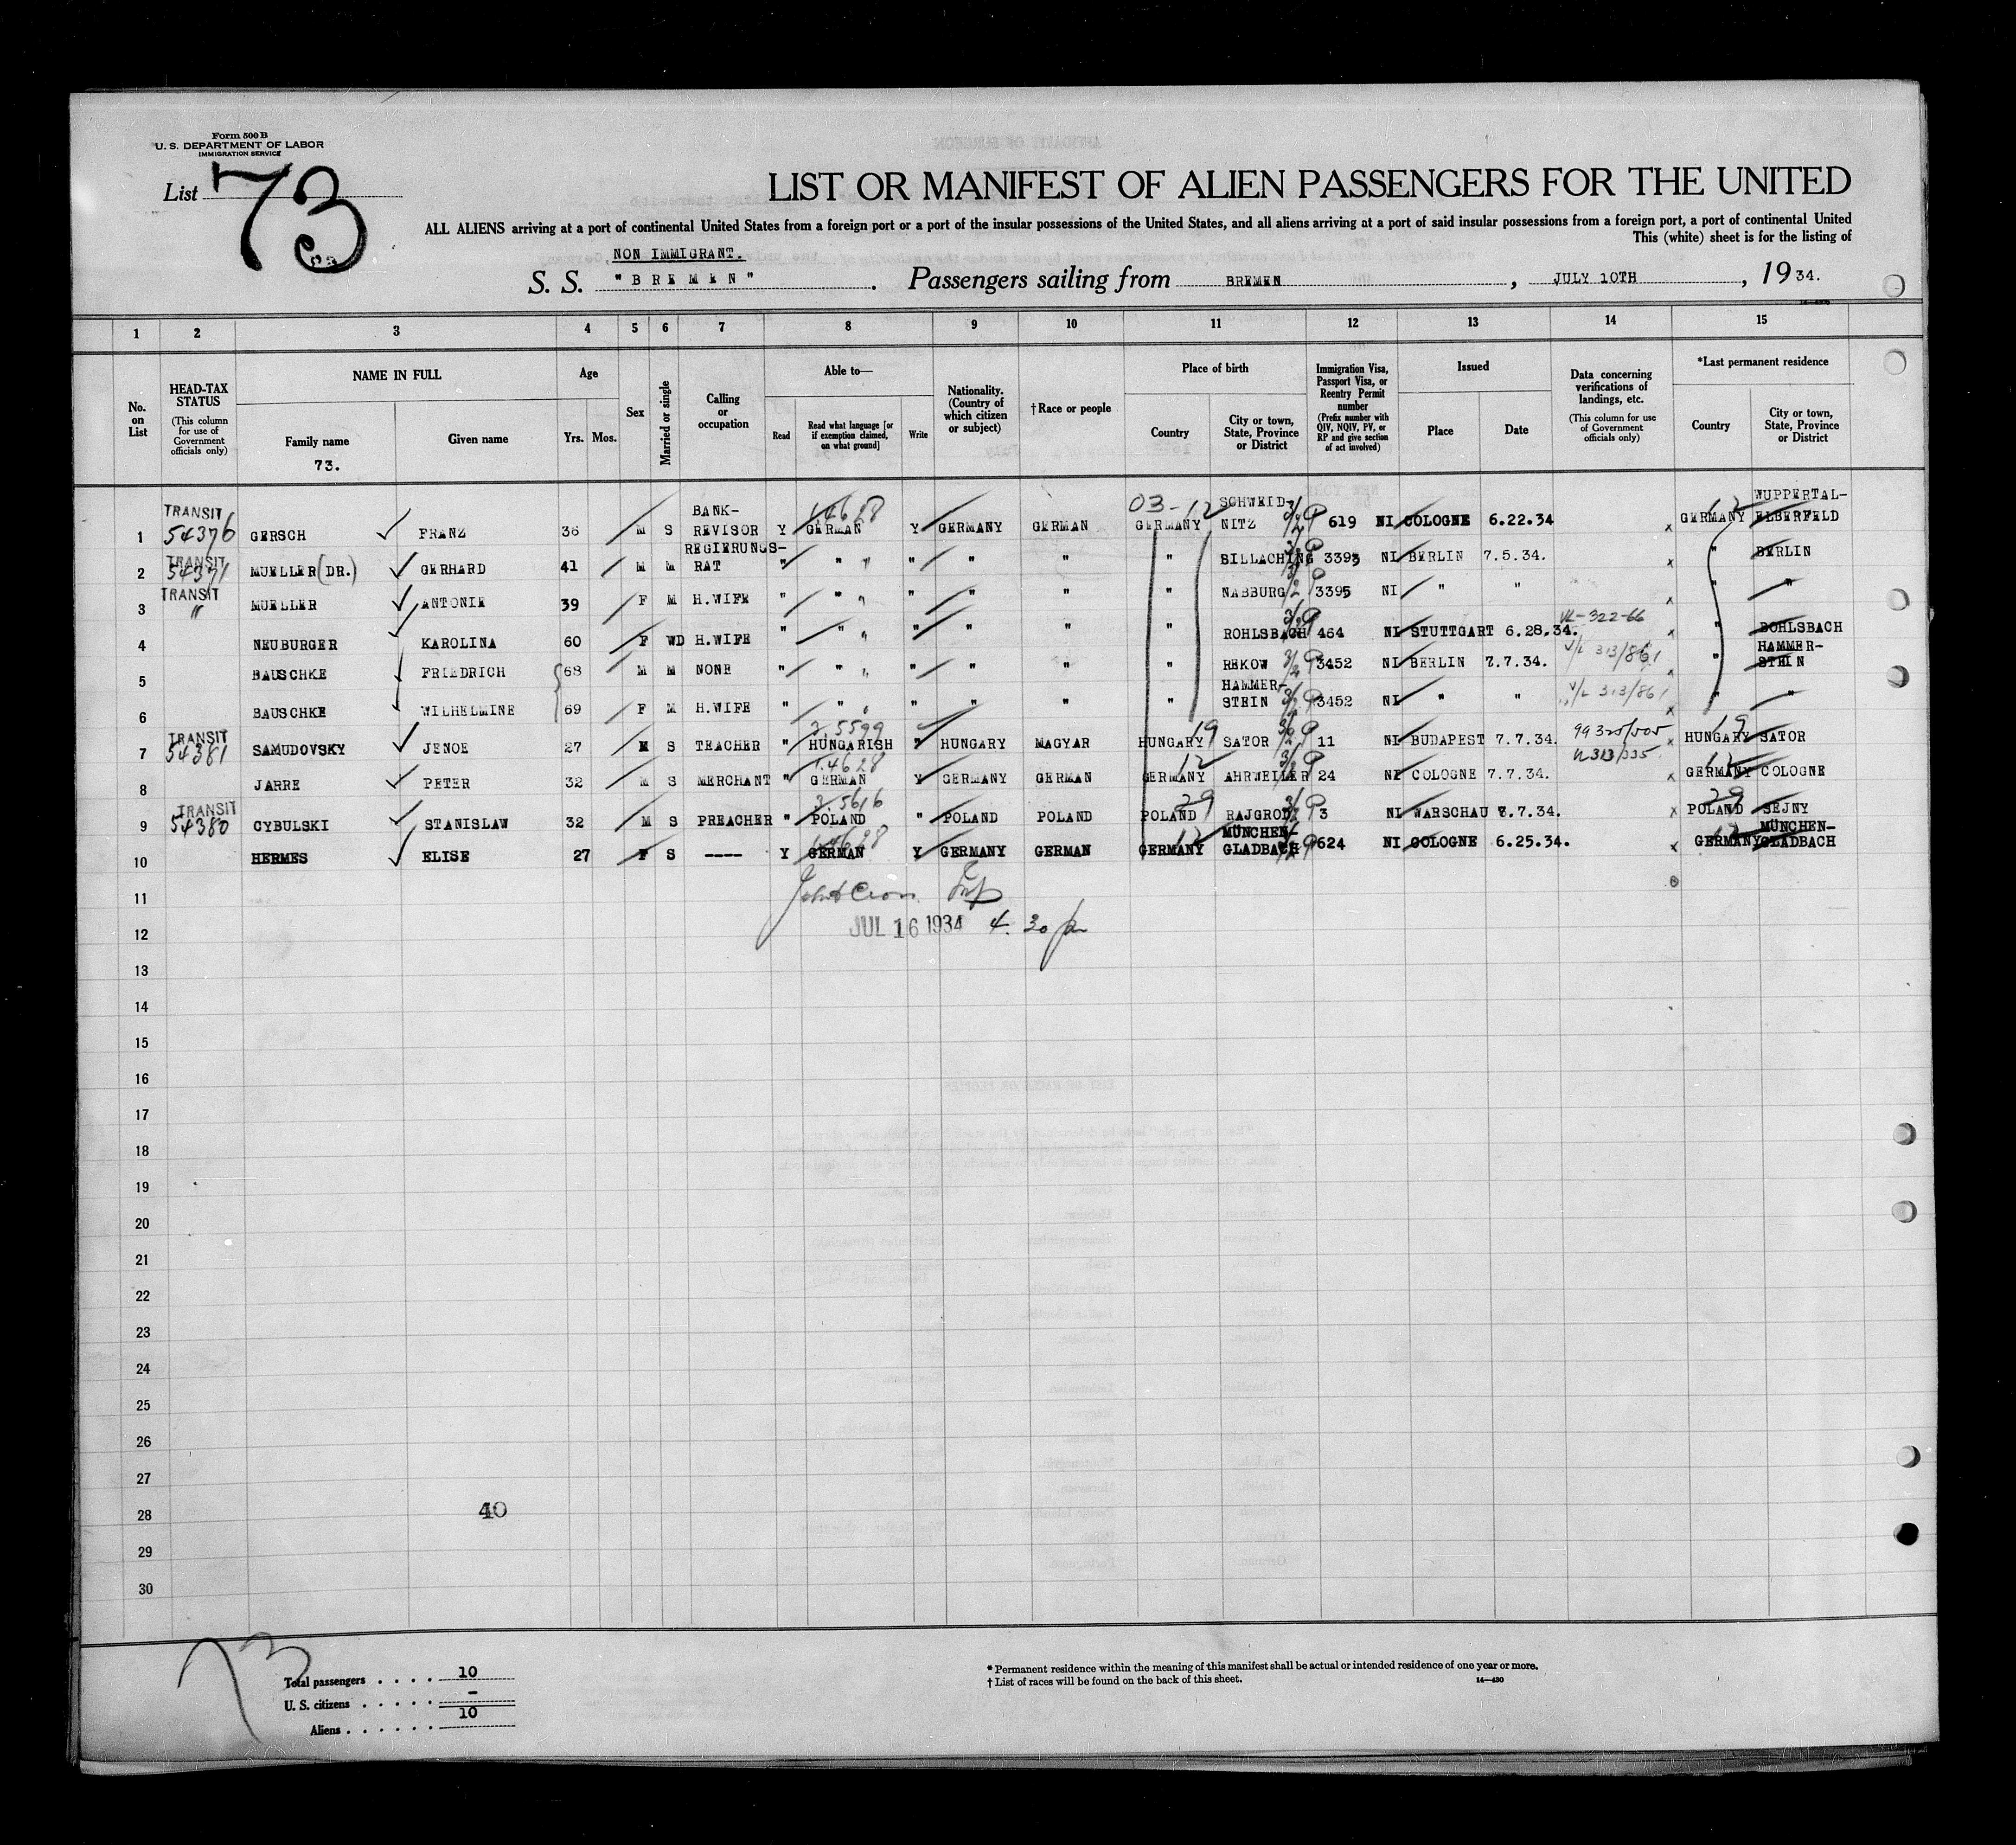 Form 500 B
U. S. DEPARTMENT OF LABOR
IMMIGRATION SERVICE
List 73
LIST OR MANIFEST OF ALIEN PASSENGERS FOR THE UNITED
ALL ALIENS arriving at a port of continental United States from a foreign port or a port of the insular possessions of the United States, and all aliens arriving at a port of said insular possessions from a foreign port, a port of continental United
This (white) sheet is for the listing of
NON IMMIGRANT.
S. S. "BREMEN". Passengers sailing from BREMEN, JULY 10TH, 1934.
1 2 3 4 5 6 7 8 9 10 11 12 13 14 15
No. on List
HEAD-TAX STATUS (This column for use of Government officials only)
NAME IN FULL
Family name
73.
Given name
Age
Yrs. Mos.
Sex
Married or single
Calling or occupation
Able to—
Read
Read what language [or if exemption claimed, on what ground]
Write
Nationality. (Country of which citizen or subject)
†Race or people
Place of birth
Country
City or town, State, Province or District
Immigration Visa, Passport Visa, or Reentry Permit number (Prefix number with QIV, NQIV, PV, or RP and give section of act involved)
Issued
Place
Date
Data concerning verifications of landings, etc. (This column for use of Government officials only)
*Last permanent residence
Country
City or town, State, Province or District
1 TRANSIT 54376 GERSCH FRANZ 36 M S BANK-REVISOR Y GERMAN 14628 Y GERMANY GERMAN 03-12 GERMANY SCHWEID-NITZ 619 NI COLOGNE 6.22.34 GERMANY 12 WUPPERTAL-ELBERFELD
2 TRANSIT 54371 MUELLER (DR.) GERHARD 41 M M REGIERUNGS-RAT " " " " " " BILLACHING 3395 NI BERLIN 7.5.34. " BERLIN
3 TRANSIT " MUELLER ANTONIE 39 F M H.WIFE " " " " " " NABBURG 3395 NI " " " "
4 NEUBURGER KAROLINA 60 F WD H.WIFE " " " " " " ROHLSBACH 464 NI STUTTGART 6.28.34. VL-322-66 " BOHLSBACH
5 BAUSCHKE FRIEDRICH 68 M M NONE " " " " " " REKOW 3452 NI BERLIN 7.7.34. V/L 313/861 " HAMMER-STEIN
6 BAUSCHKE WILHELMINE 69 F M H.WIFE " " " " " " HAMMER-STEIN 3452 NI " " V/L 313/861 " "
7 TRANSIT 54381 SAMUDOVSKY JENOE 27 M S TEACHER " HUNGARISH 3.5599 " HUNGARY MAGYAR HUNGARY 19 SATOR 11 NI BUDAPEST 7.7.34. 99320/505 HUNGARY 19 SATOR
8 JARRE PETER 32 M S MERCHANT " GERMAN 14628 Y GERMANY GERMAN GERMANY 12 AHRWEILER 24 NI COLOGNE 7.7.34. VL313/335 GERMANY 12 COLOGNE
9 TRANSIT 54380 CYBULSKI STANISLAW 32 M S PREACHER " POLAND 3.5616 " POLAND POLAND POLAND 29 RAJGROD 3 NI WARSCHAU 7.7.34. POLAND 29 SEJNY
10 HERMES ELISE 27 F S ---- Y GERMAN 14628 Y GERMANY GERMAN GERMANY 12 MÜNCHEN-GLADBACH 624 NI COLOGNE 6.25.34. GERMANY 12 MÜNCHEN-GLADBACH
11
12 JUL 16 1934 4.30 pm
13
14
15
16
17
18
19
20
21
22
23
24
25
26
27
28 40
29
30
73
Total passengers . . . . 10
U. S. citizens . . . . . . -
Aliens . . . . . . 10
* Permanent residence within the meaning of this manifest shall be actual or intended residence of one year or more.
† List of races will be found on the back of this sheet.
14—430